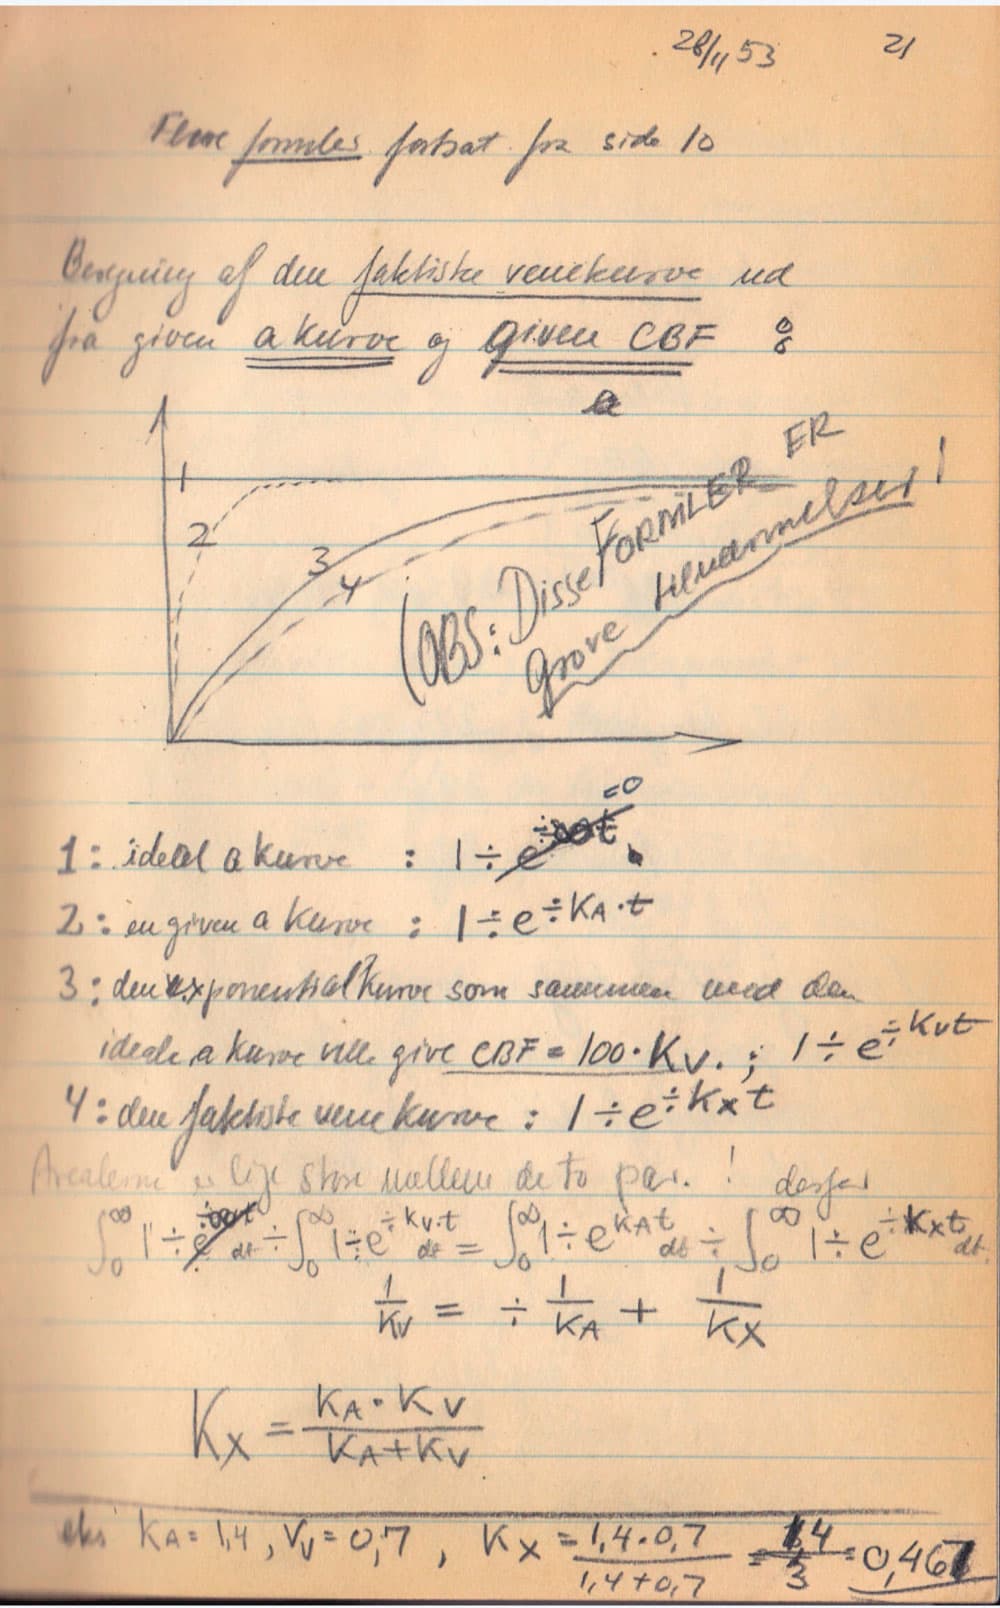 28/11 53 21
Flere formler fortsat fra side 10
Beregning af den faktiske venekurve ud
fra given a kurve og given CBF :
a
1
2
3
4
(OBS: Disse FORMLER ER
grove tilnærmelser!
=0
1: ideel a kurve : 1 ÷ e^÷∞t
2: en given a kurve : 1 ÷ e^÷KA·t
3: den exponentialkurve som sammen med den
ideale a kurve ville give CBF = 100·Kv. ; 1 ÷ e^÷Kvt
4: den faktiske venekurve : 1 ÷ e^÷Kxt
Arealerne er lige store mellem de to par. ! derfor
∫₀^∞ 1 ÷ e^÷∞t dt ÷ ∫₀^∞ 1 ÷ e^÷Kv·t dt = ∫₀^∞ 1 ÷ e^KAt dt ÷ ∫₀^∞ 1 ÷ e^÷Kxt dt.
1/Kv = ÷ 1/KA + 1/Kx
Kx = KA · Kv / KA + Kv
eks KA = 1,4, Vv = 0,7, Kx = 1,4·0,7 / 1,4+0,7 = 1,4/3 = 0,467